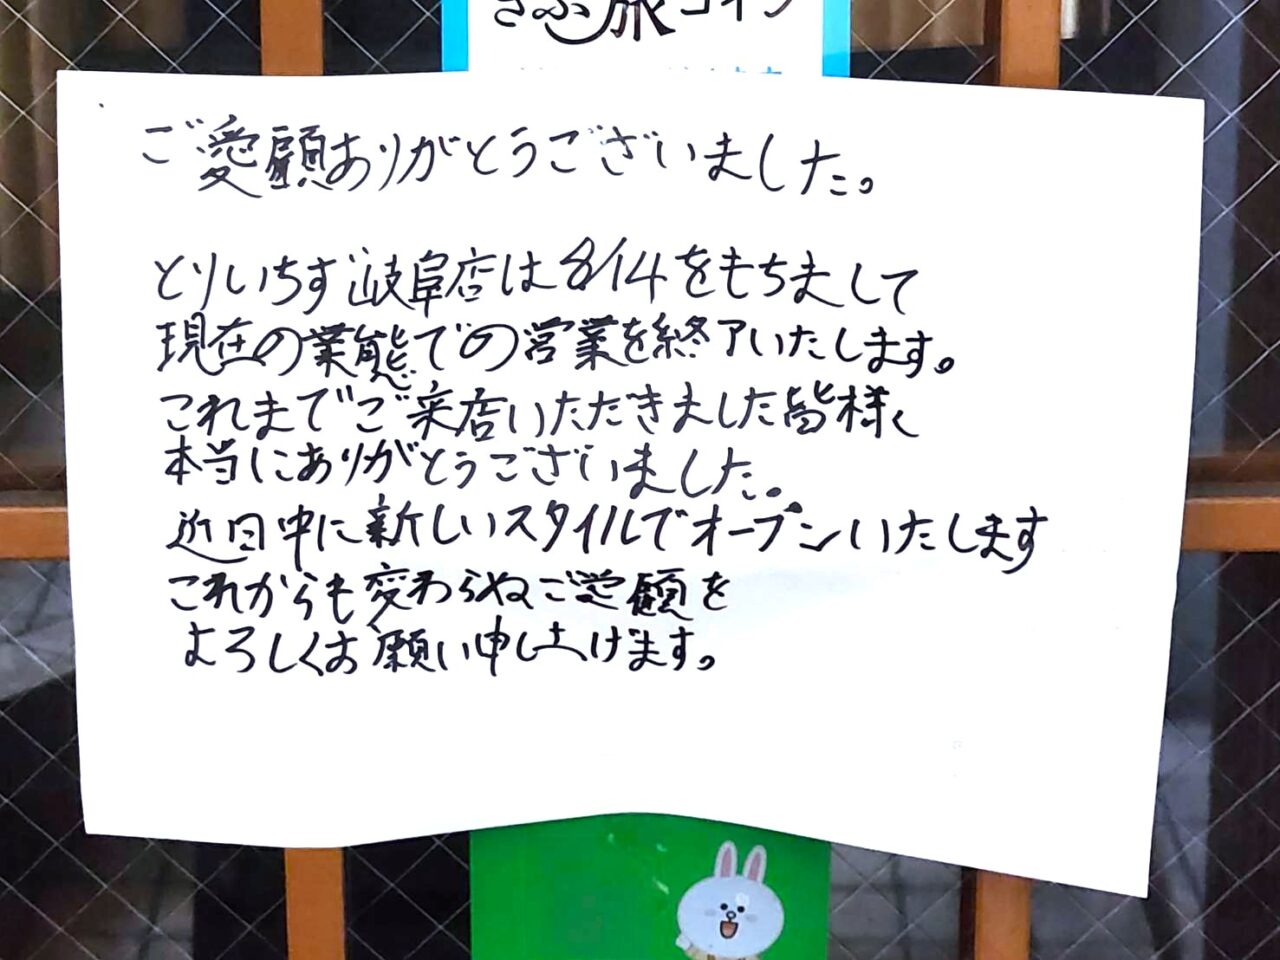 ぎふ旅コイン
ご愛顧ありがとうございました。
とりいちず岐阜店は8/14をもちまして
現在の業態での営業を終了いたします。
これまでご来店いただきました皆様、
本当にありがとうございました。
近日中に新しいスタイルでオープンいたします
これからも変わらぬご愛顧を
よろしくお願い申し上げます。